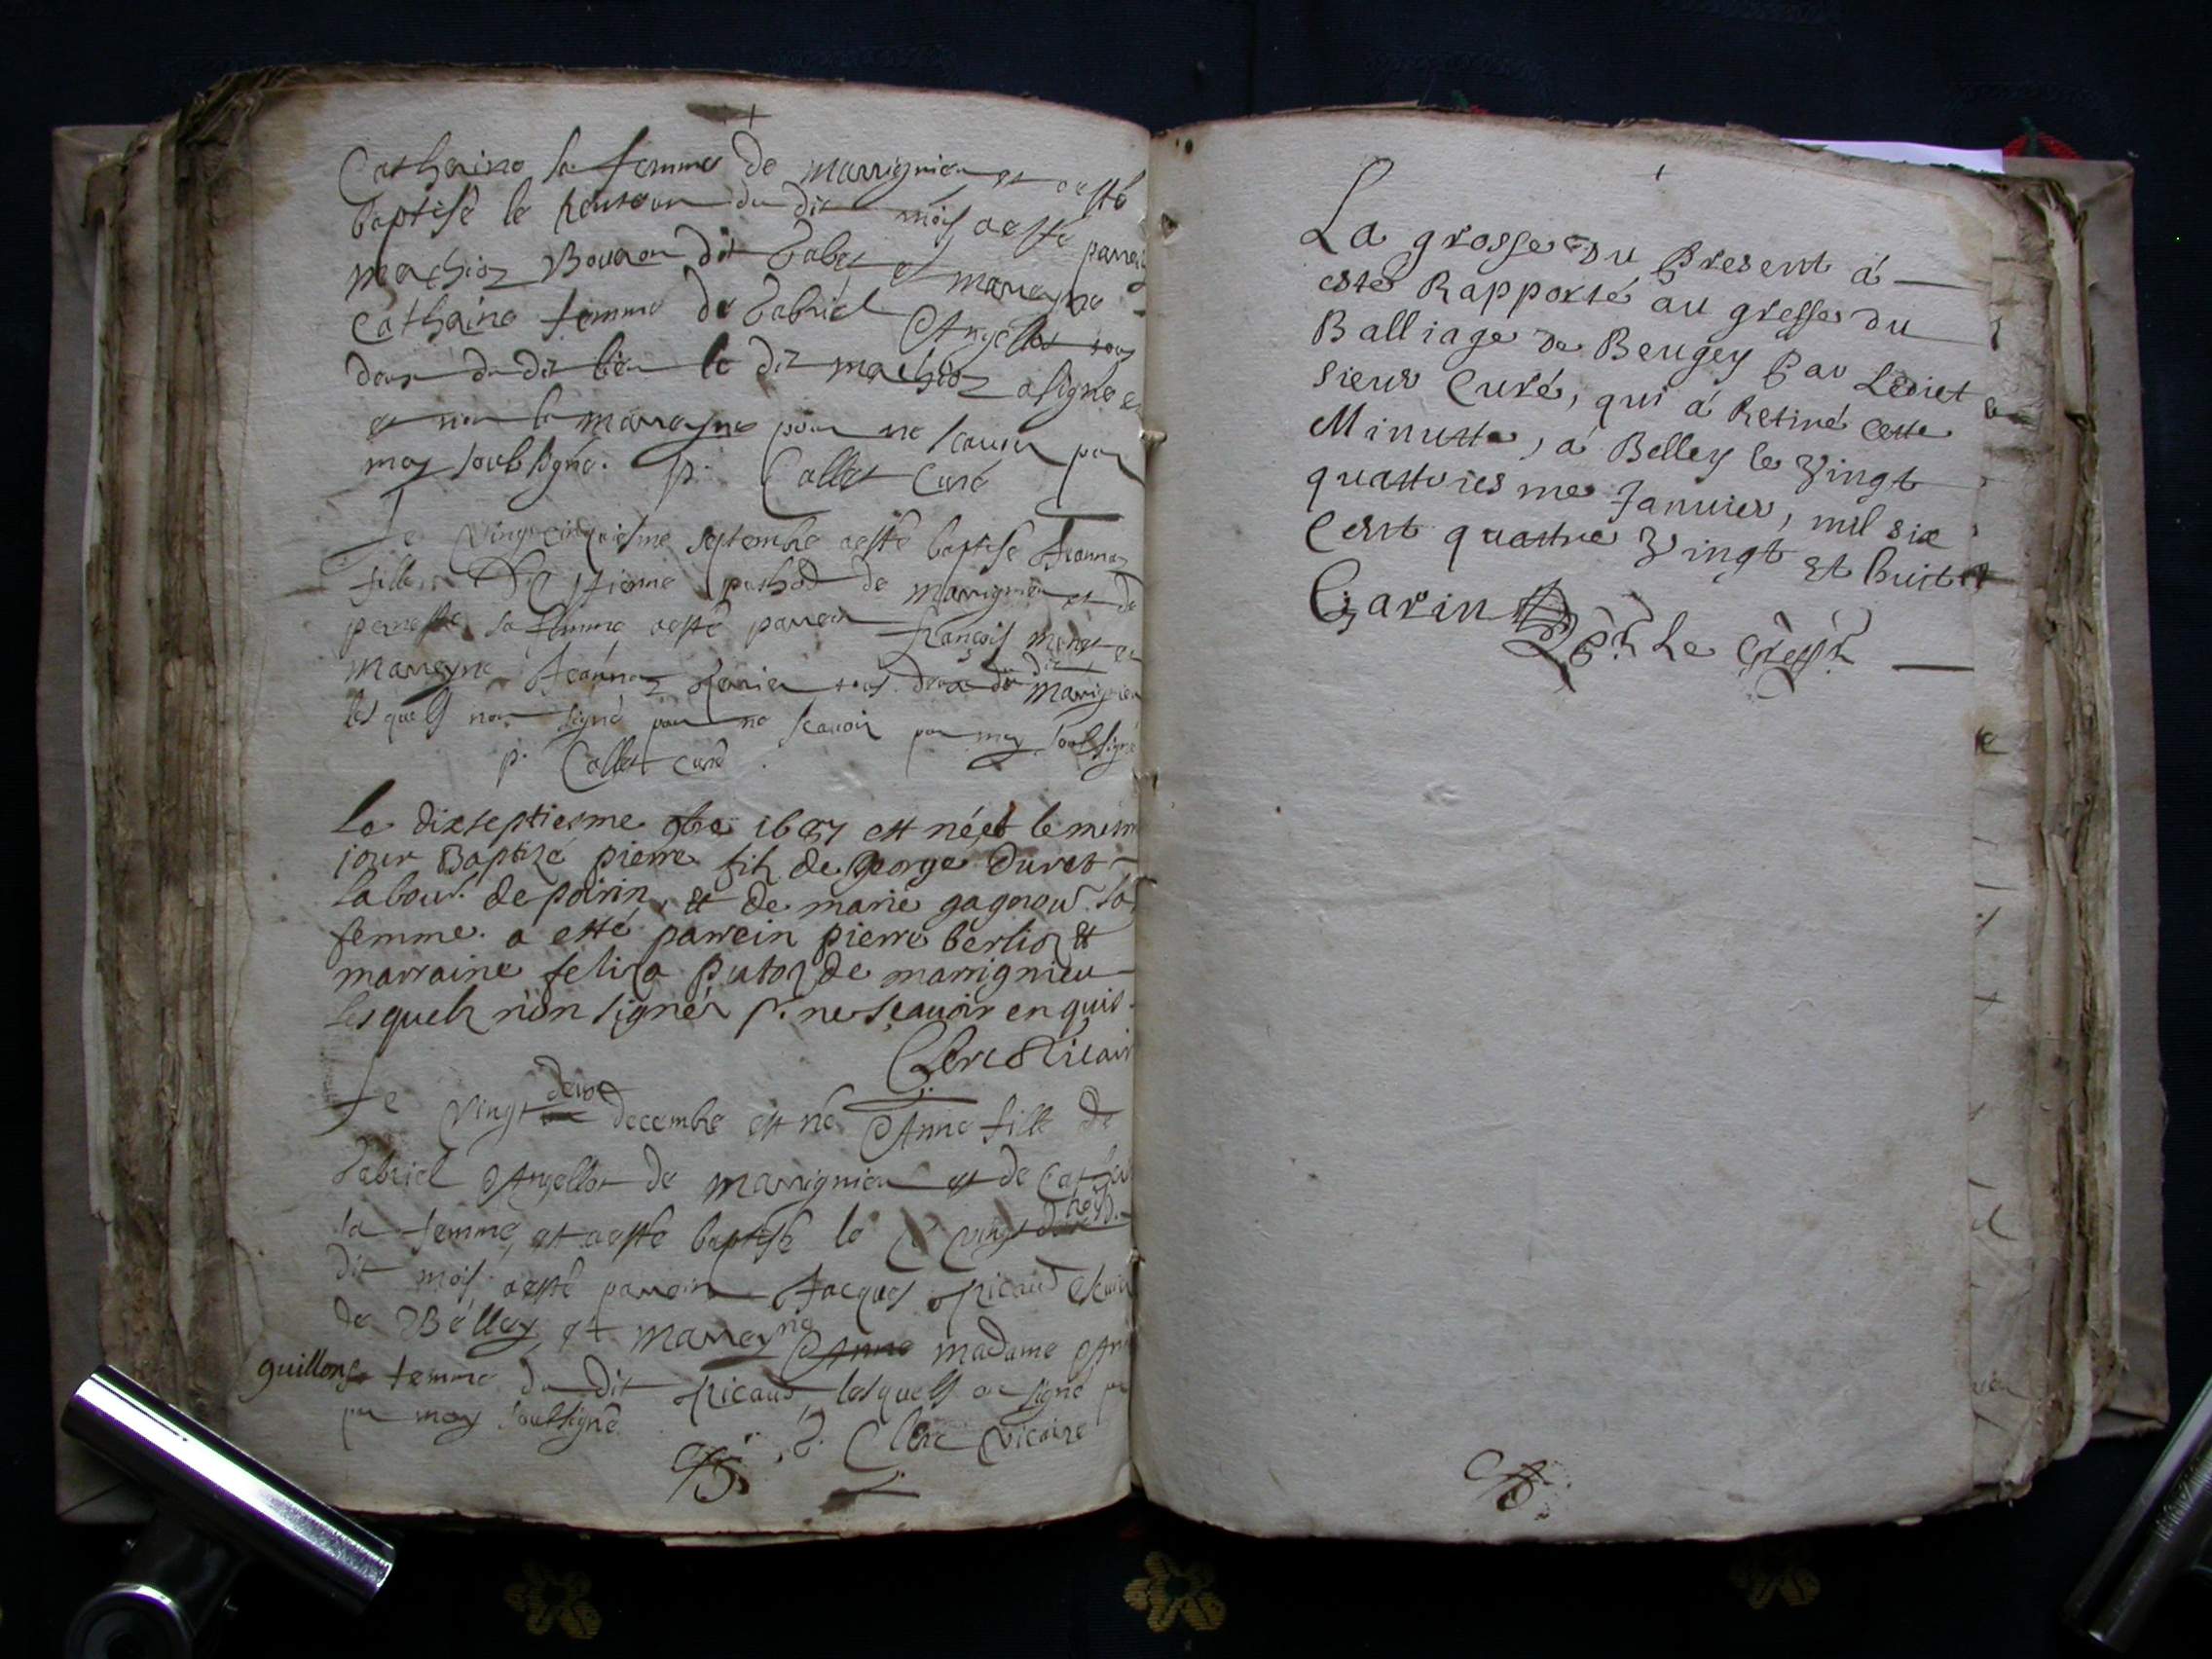 Catherine sa femme de marrignieu et a esté
baptisé le du dit mois a esté parrai
dit et marreyne
Catherine femme de Gabriel Angellot tous
deux du dit lieu le dit a signé
et non la marreyne pour ne scavoir par
moy soubsigné. p. Collet Curé
Le vingt cinquiesme septembre a esté baptisé Jeanne
fille D'Estienne pochod de marrignieu et de
pernette sa femme a esté parrein françois et
marreyne Jeanne tous deux du dit marrignieu
lesquels non signé pour ne scavoir par moy soubsigné
p. Collet curé
Le dixseptiesme 9bre 1687 est né et le mesm
jour Baptizé pierre filz de george Duret
labour. de poirin, et de marie gagnou sa
femme. a esté parrein pierre berlioz et
marraine feliza putoz de marrignieu
lesquelz n'on signéz p. ne sçavoir enquis.
Clerc Vicair
Le vingt deux decembre est né Anne fille de
Gabriel Angellot de marrignieu et de
la femme, et a esté baptisé le vingt
dit mois a esté parrein Jacques Ricaud
de Belley et marreyne Anne madame
guillon femme du dit Ricaud, lesquels on signé
par moy soubsigné. Clerc vicaire
La grosse du Present à
esté Rapporté au greffe du
Balliage de Beugey Par Ledict
sieur Curé, qui à Retiré cette
Minutte, à Belley le Vingt
quattriesme Januier, mil six
Cent quattre Vingt et huit
Garin